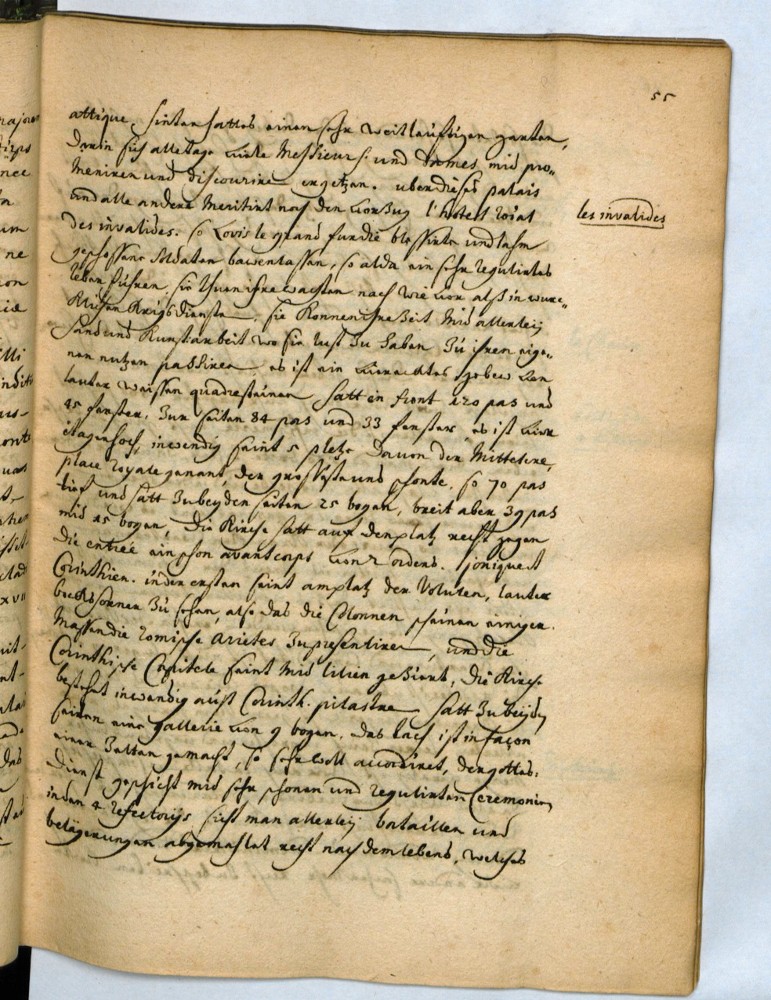 55
attique. hinten hattes einen sehr weitleüftigen garten,
darin sich alletage viele Messieurs und Dames mid pro„
meniren und discouriren ergetzen. uber dieses palais
und alle andere Meritirt noch den vorzug l'hotell roiat
les invalides
des invalides. so Lovis le grand fur die blessirte und lahm
geschossene Soldatten bauwen lassen, so alda ein sehr regulirtes
leben führen, sie thuen ihre wachten nach wie vor alß in würc„
klichen Krigsdiensten. sie Konnen ihre Zeit Mid allerleÿ
hand und Kunstarbeit wo sie lust Zu haben Zu ihren eige„
nen nutzen passiren. es ist ein vierecktes gebew von
lauter weissen quadersteinen hatt in front 120 pas und
45 fenster. Zur seiten 84 pas und 33 fenster, es ist vier
etagen hoch, inwendig seint 5 pletze davon der Mittelere,
place royale genant, der grosseste und schonte, so 70 pas
tief und hatt Zu beyden seiten 25 bogen, breit aber 39 pas
mid 15 bogen, die Kirche hatt auf den platz recht gegen
die entrée ein schon avantcorps von 2 ordens. jonique et
Corinthien. in der ersten seint am platz der Voluten, lauter
bockshorner Zu sehen, also das die Colonnen scheinen einiger
Massen die romische Arietes Zu presentiren, und die
Corinthische Capitele seint Mid lilien geZiert, die Kirche
bestehet inwendig auß Corinth. pilastren hatt Zu beyden
seiten eine gallerie von 9 bogen. das dach ist in façon
einer Zelten gemacht, so sehr woll accordiret, der gottes„
dienst geschicht mid sehr schonen und regulirten Ceremonien
in den 4 refectorijs sieht man allerleÿ bataillen und
belägerungen abgemahlet recht nach dem lebend, welches